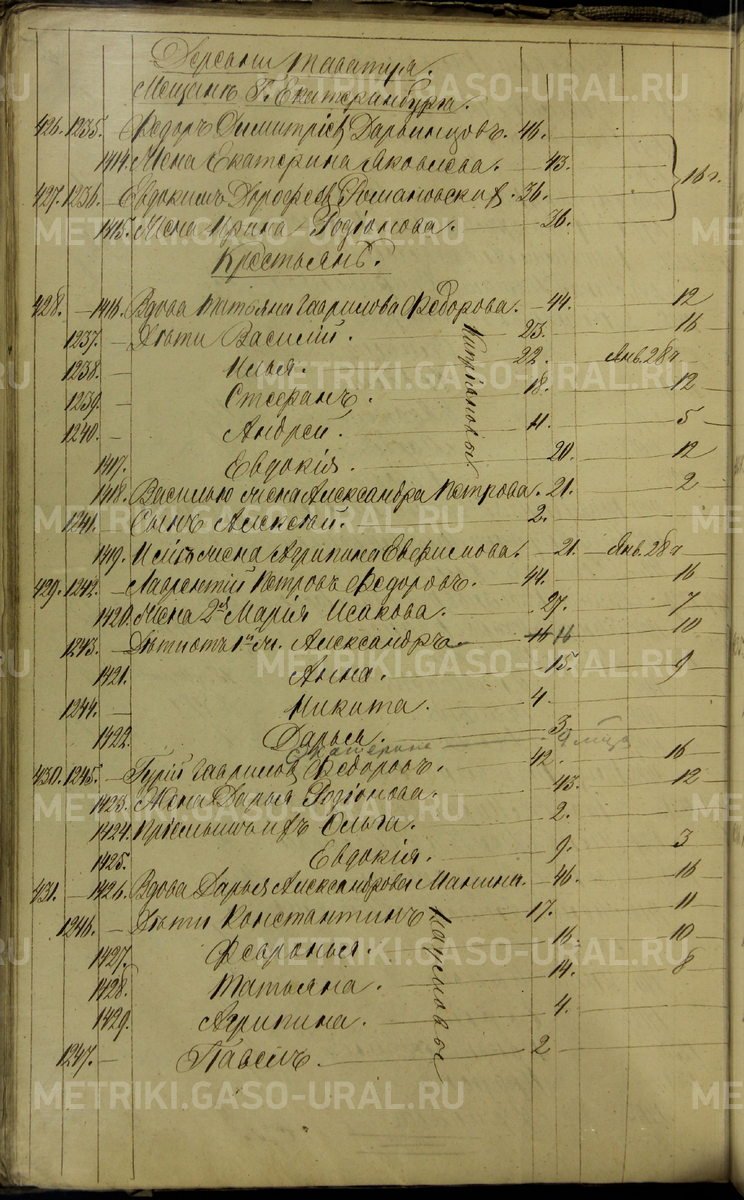 Деревни Таватуя.
Мещанъ Г. Екатеринбурга.
426. 1235. Ѳедоръ Димитріев 46.
1414. Жена Екатерина Яковлева. 43.
427. 1236. Евдокимъ Дорофеев Романовских. 36. 16 г.
1415. Жена Ирина Родіонова. 36.
Крестьянъ.
428. 1416. Вдова Татьяна Гаврилова Ѳедорова. 44. 12
1237. Дѣти Василій. 23. 16
1238. Илья. 22. Янв. 28
1239. Стефанъ. 18. 12
Кипріановы
1240. Андрей. 11. 5
1417. Евдокія. 20. 12
1418. Василью жена Александра Петрова. 21. 2
1241. Сынъ Алексѣй. 2.
1419. Ильѣ жена Агрипина Евфимова. 21. Янв. 28
429. 1242. Лаврентій Петровъ Ѳедоровъ. 44. 16
1420. Жена 2я Марія Исакова. 27. 7
1243. Дѣти отъ 1й ж. Александръ 16 10
1421. Анна. 15. 9
1244. Никита. 4.
1422. Дарья. 3
Екатерина 9 мѣс
430. 1245. Гурій Гаврилов Ѳедоровъ. 42. 16
1423. Жена Дарья Родіонова. 43. 12
1424. Пріемыши ихъ Ольга. 2.
1425. Евдокія. 9. 3
431. 1426. Вдова Дарья Александрова Манина. 46. 16
1246. Дѣти Константинъ 17. 11
Наумовы
1427. Ѳевронья. 16. 10
1428. Татьяна. 14. 8
1429. Агрипина. 4.
1247. Павелъ. 2
METRIKI.GASO-URAL.RU